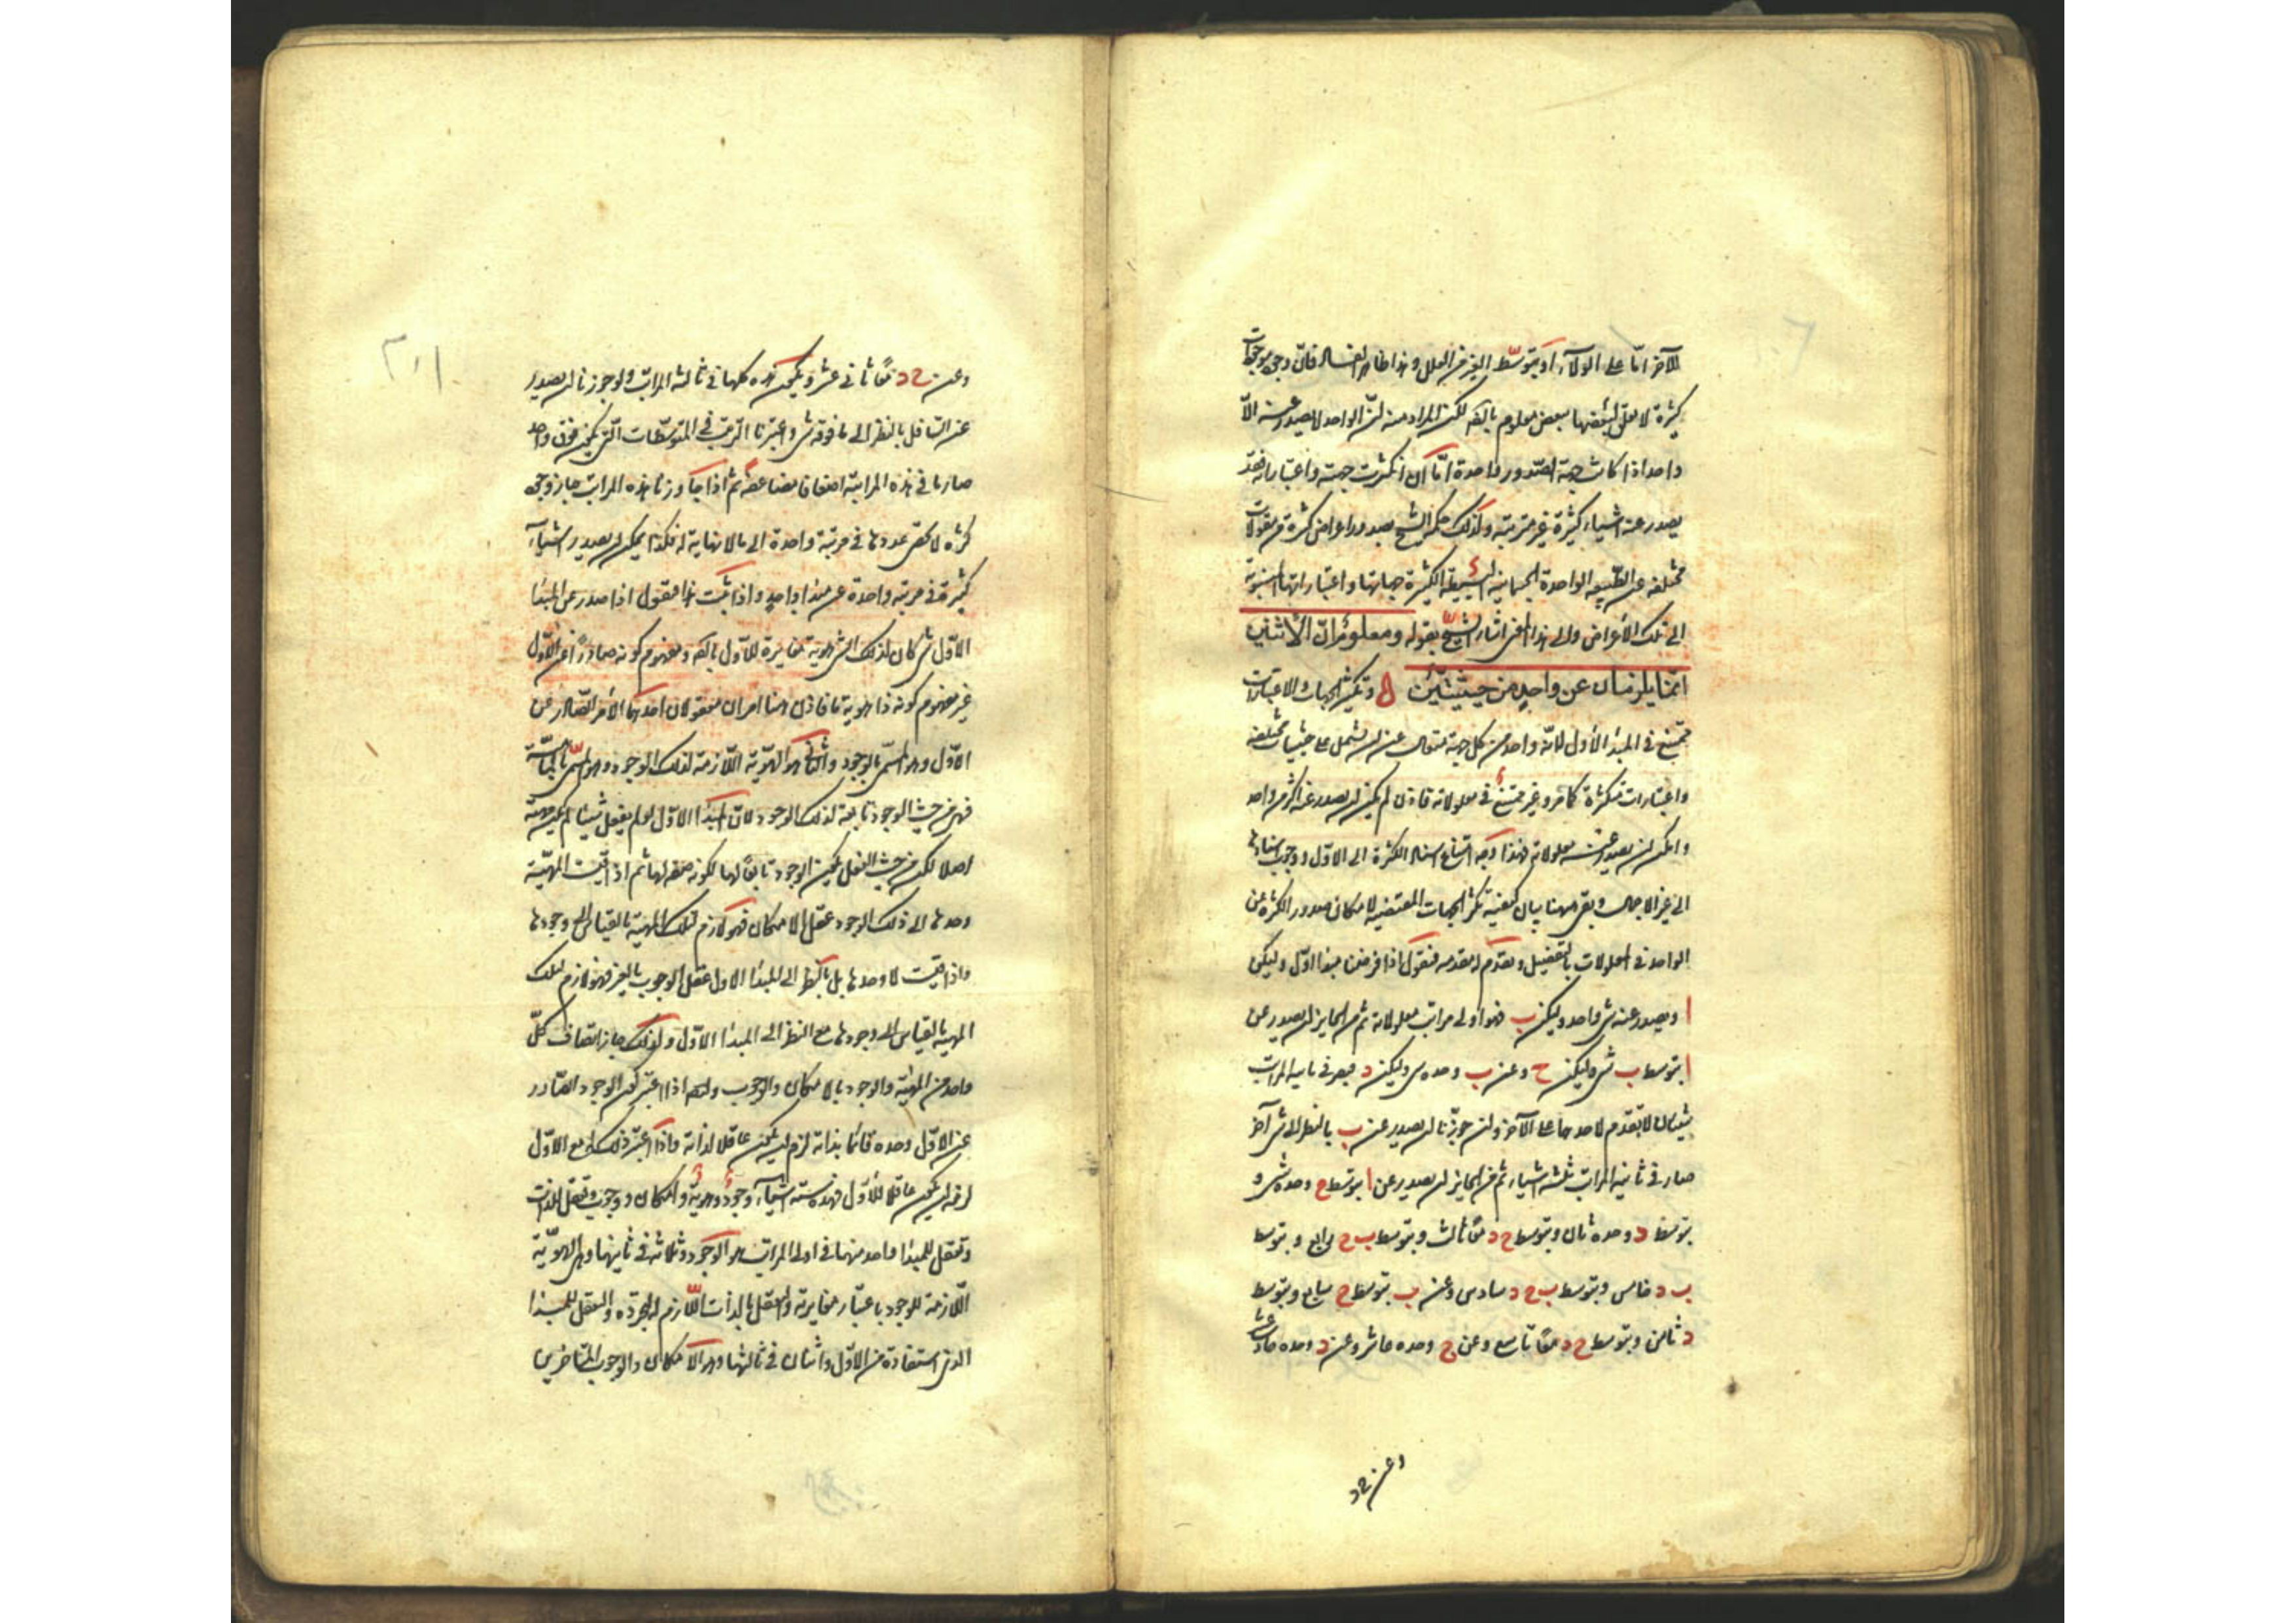 الآخر اما على الولاء او بتوسط الغير من العلل وهذا ظاهر الفساد فان وجود موجودات
كثيرة لا تعلق لبعضها ببعض معلوم بالضرورة لكن المراد منه ان الواحد لا يصدر عنه الا
واحد اذا كانت جهة الصدور واحدة اما ان تكثرت جهته واعتباراته فقد
يصدر عنه اشياء كثيرة غير مترتبة ولذلك حكم الشيخ بصدور اعراض كثيرة من مقولات
مختلفة عن الطبيعة الواحدة الجسمانية البسيطة الكثيرة جهاتها واعتباراتها المنسوبة
الى تلك الأعراض والى هذا المعنى اشار الشيخ بقوله ومعلوم ان الاثنين
انما يلزمان عن واحد من حيثيتين وتكثر الجهات والاعتبارات
ممتنع في المبدأ الأول لأنه واحد من كل جهة متعال عن ان يشتمل على حيثيات مختلفة
واعتبارات متكثرة كما مر وغير ممتنع في معلولاته فاذن لم يكن ان يصدر عنه اكثر من واحد
وامكن ان يصدر عن معلولاته فهذا وجه امتناع استناد الكثرة الى الاول ووجوب استنادها
الى غيره بالاجمال وبقي ههنا بيان كيفية تكثر الجهات المقتضية لامكان صدور الكثرة عن
الواحد في المعلولات بالتفصيل ونقدم له مقدمة فنقول اذا فرضنا مبدا اول وليكن
ا ويصدر عنه شئ واحد وليكن ب فهو اولى مراتب معلولاته ثم من الجايز ان يصدر عن
ا بتوسط ب شئ وليكن ح وعن ب وحده شئ وليكن د فيصير في ثانية المراتب
شيئان لا تقدم لاحدهما على الآخر وان جوزنا ان يصدر عن ب بالنظر الى شئ آخر
صار في ثانية المراتب ثلثة اشياء ثم من الجايز ان يصدر عن ا بتوسط ح وحده شئ و
بتوسط د وحده ثان وبتوسط ح د معا ثالث وبتوسط ب ح رابع وبتوسط
ب د خامس وبتوسط ب ح د سادس وعن ب بتوسط ح سابع وبتوسط
د ثامن وبتوسط ح د معا تاسع وعن ح وحده عاشر وعن د وحده حادي عشر
وعن ح د
وعن ح د معا ثاني عشر وتكون هذه كلها في ثالثة المراتب ولو جوزنا ان يصدر
عن السافل بالنظر الى ما فوقه شئ واعتبرنا الترتيب في المتوسطات التي تكون فوق واحد
صار ما في هذه المرتبة اضعافا مضاعفة ثم اذا جاوزنا هذه المراتب جاز وجود
كثرة لا تحصى عددها في مرتبة واحدة الى ما لا نهاية له فهكذا يمكن ان يصدر اشياء
كثيرة في مرتبة واحدة عن مبدا واحد واذا ثبت هذا فنقول اذا صدر عن المبدا
الاول شئ كان لذلك الشئ هوية مغايرة للأول بالضرورة ومفهوم كونه صادرا عن الاول
غير مفهوم كونه ذا هوية ما فاذن ههنا امران معقولان احدهما الأمر الصادر عن
الاول وهو المسمى بالوجود والثاني هو الهوية اللازمة لذلك الوجود وهو المسمى بالماهية
فهي من حيث الوجود تابعة لذلك الوجود لان المبدا الاول لو لم يفعل شيئا لم يكن مهية
اصلا لكن من حيث العقل يكون الوجود تابعا لها لكونه صفة لها ثم اذا قيست المهية
وحدها الى ذلك الوجود عقل الامكان فهو لازم لتلك المهية بالقياس الى وجودها
واذا قيست لا وحدها بل بالنظر الى المبدا الاول عقل الوجوب بالغير فهو لازم لتلك
المهية بالقياس الى وجودها مع النظر الى المبدا الاول ولذلك جاز اتصاف كل
واحد من المهية والوجود بالامكان والوجوب وايضا اذا اعتبر كون الوجود الصادر
عن الاول وحده قائما بذاته لزم ان يكون عاقلا لذاته واذا اعتبر ذلك له مع الاول
لزمه ان يكون عاقلا للأول فهذه ستة اشياء وجود وهوية وامكان ووجوب وتعقل للذات
وتعقل للمبدا واحد منها في اولى المراتب هو الوجود وثلاثة في ثانيتها وهي الهوية
اللازمة للوجود باعتبار مغايرته والتعقل بالذات اللازم له لتجرده والتعقل للمبدا
الذي استفاده من الاول واثنان في ثالثتها وهو الامكان والوجوب المتاخرين